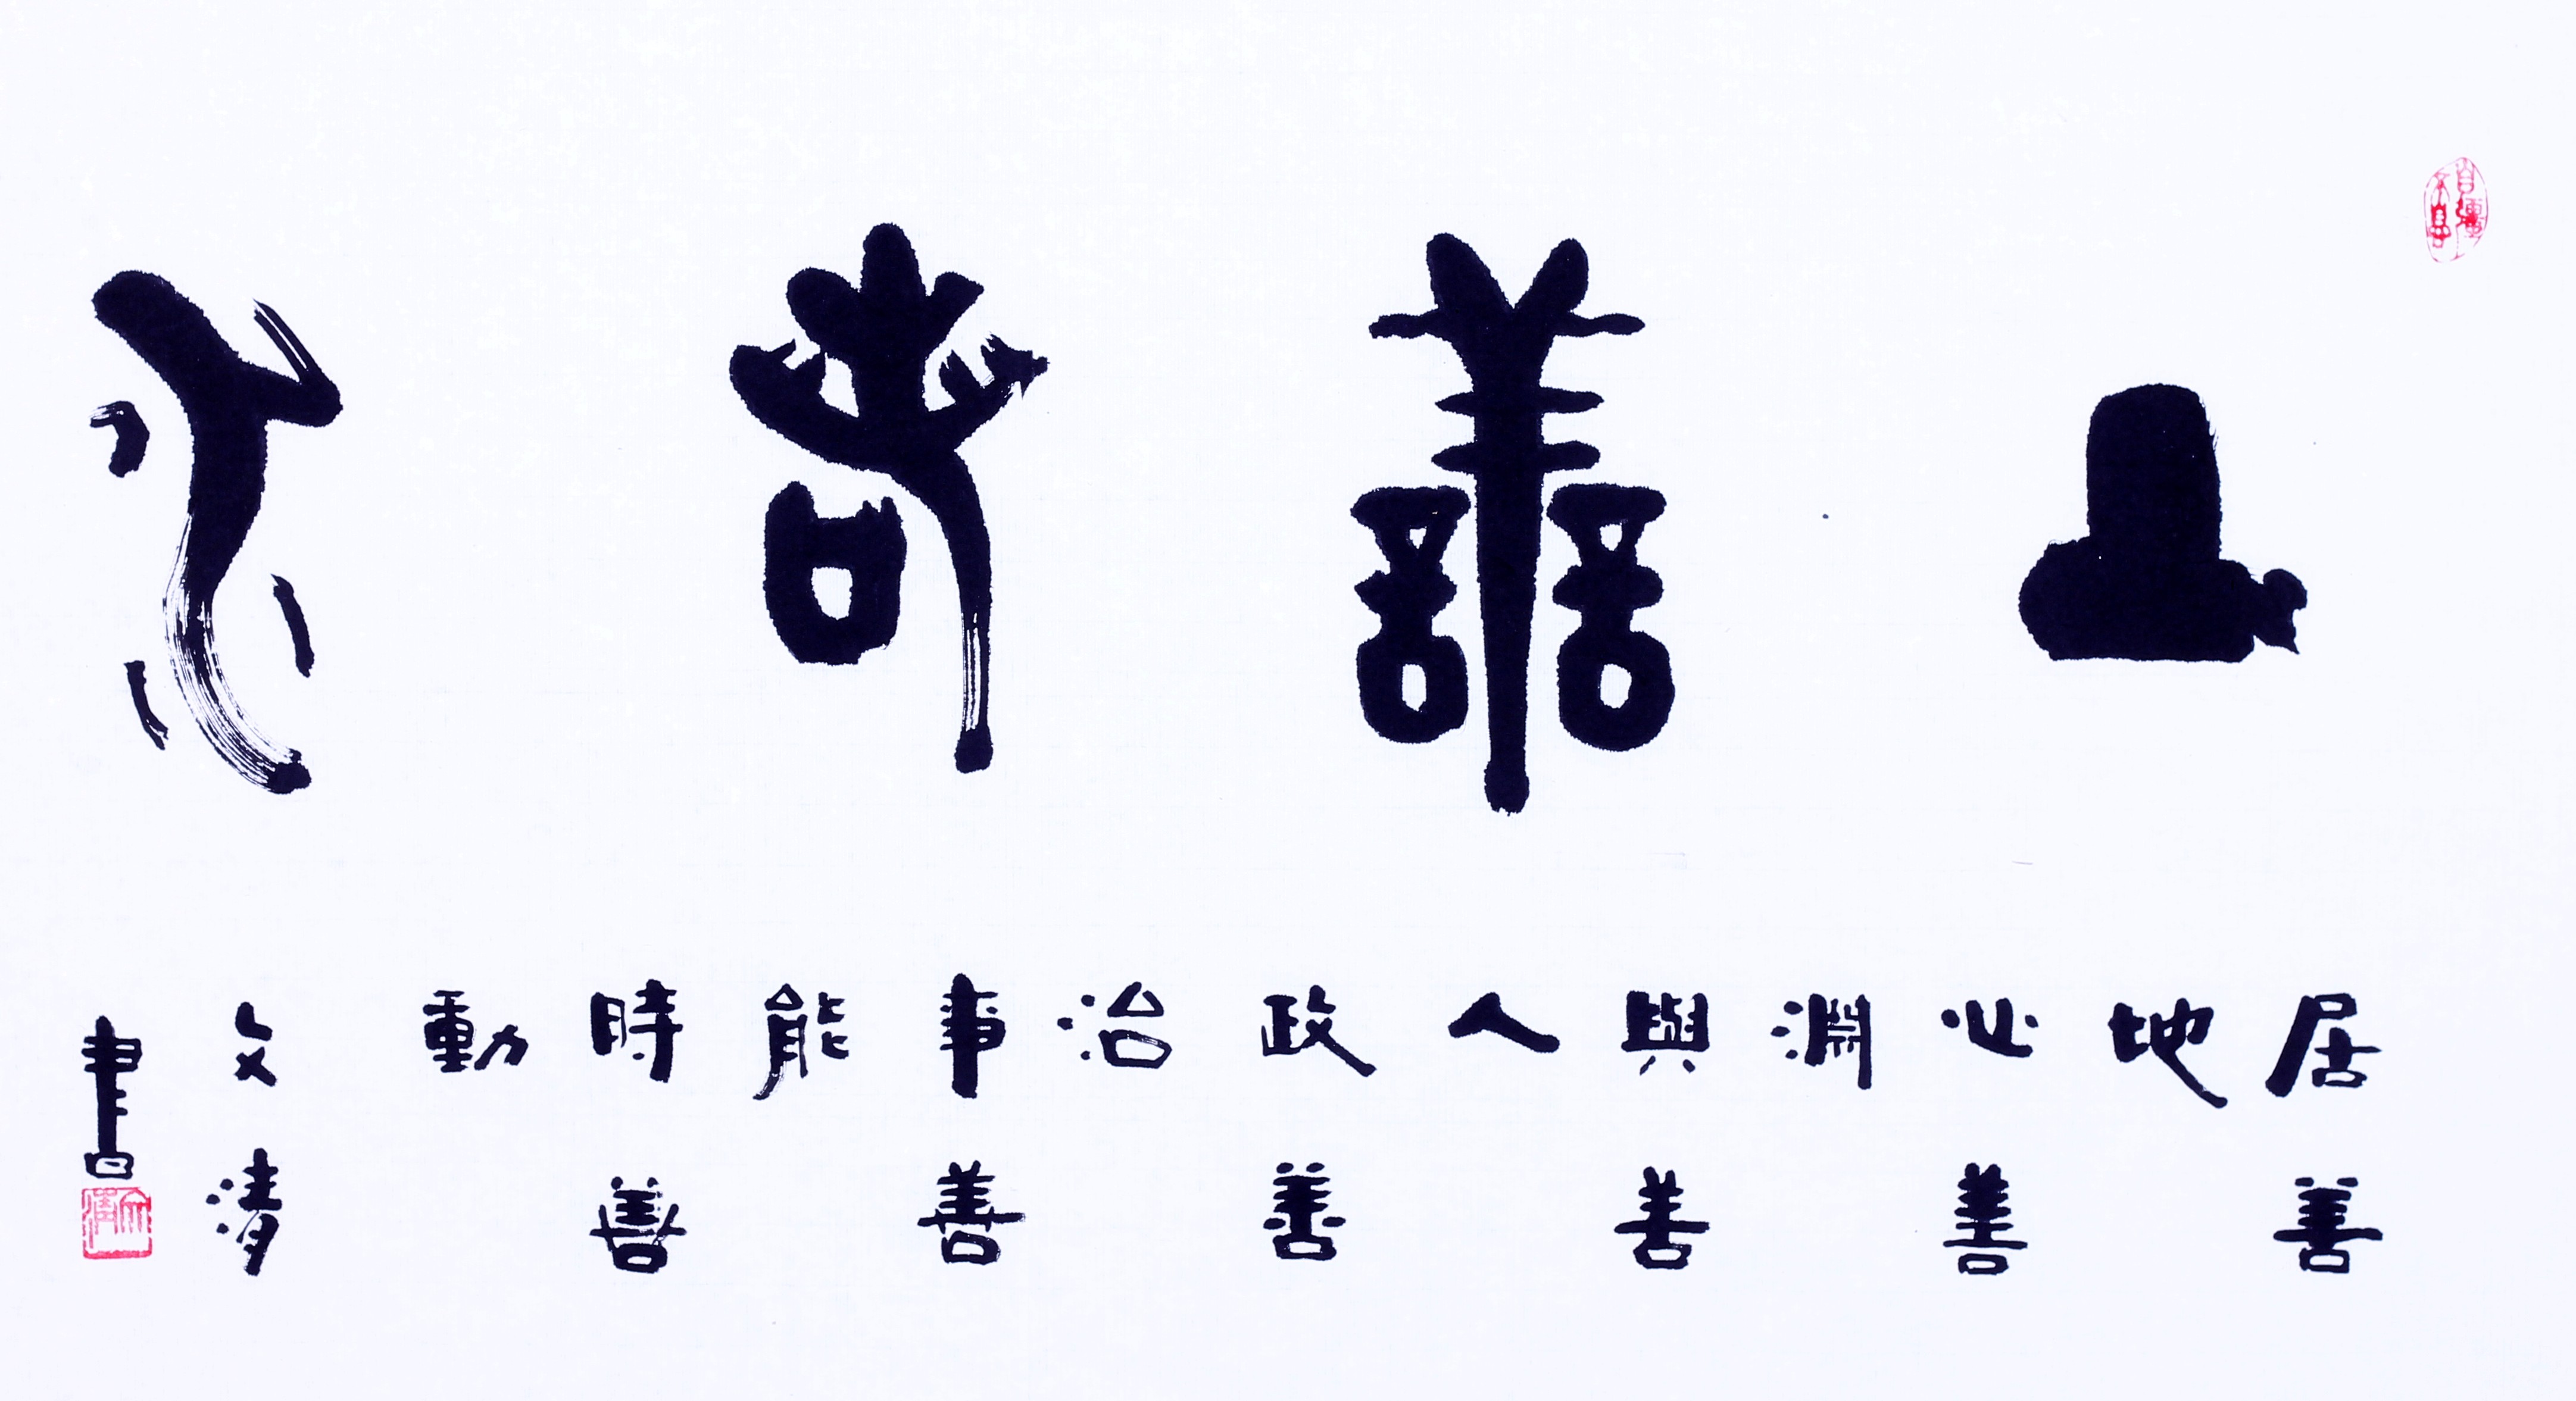 上善若水
居善
地
心善
淵
與善
人
政善
治
事善
能
時善
動
文清
書